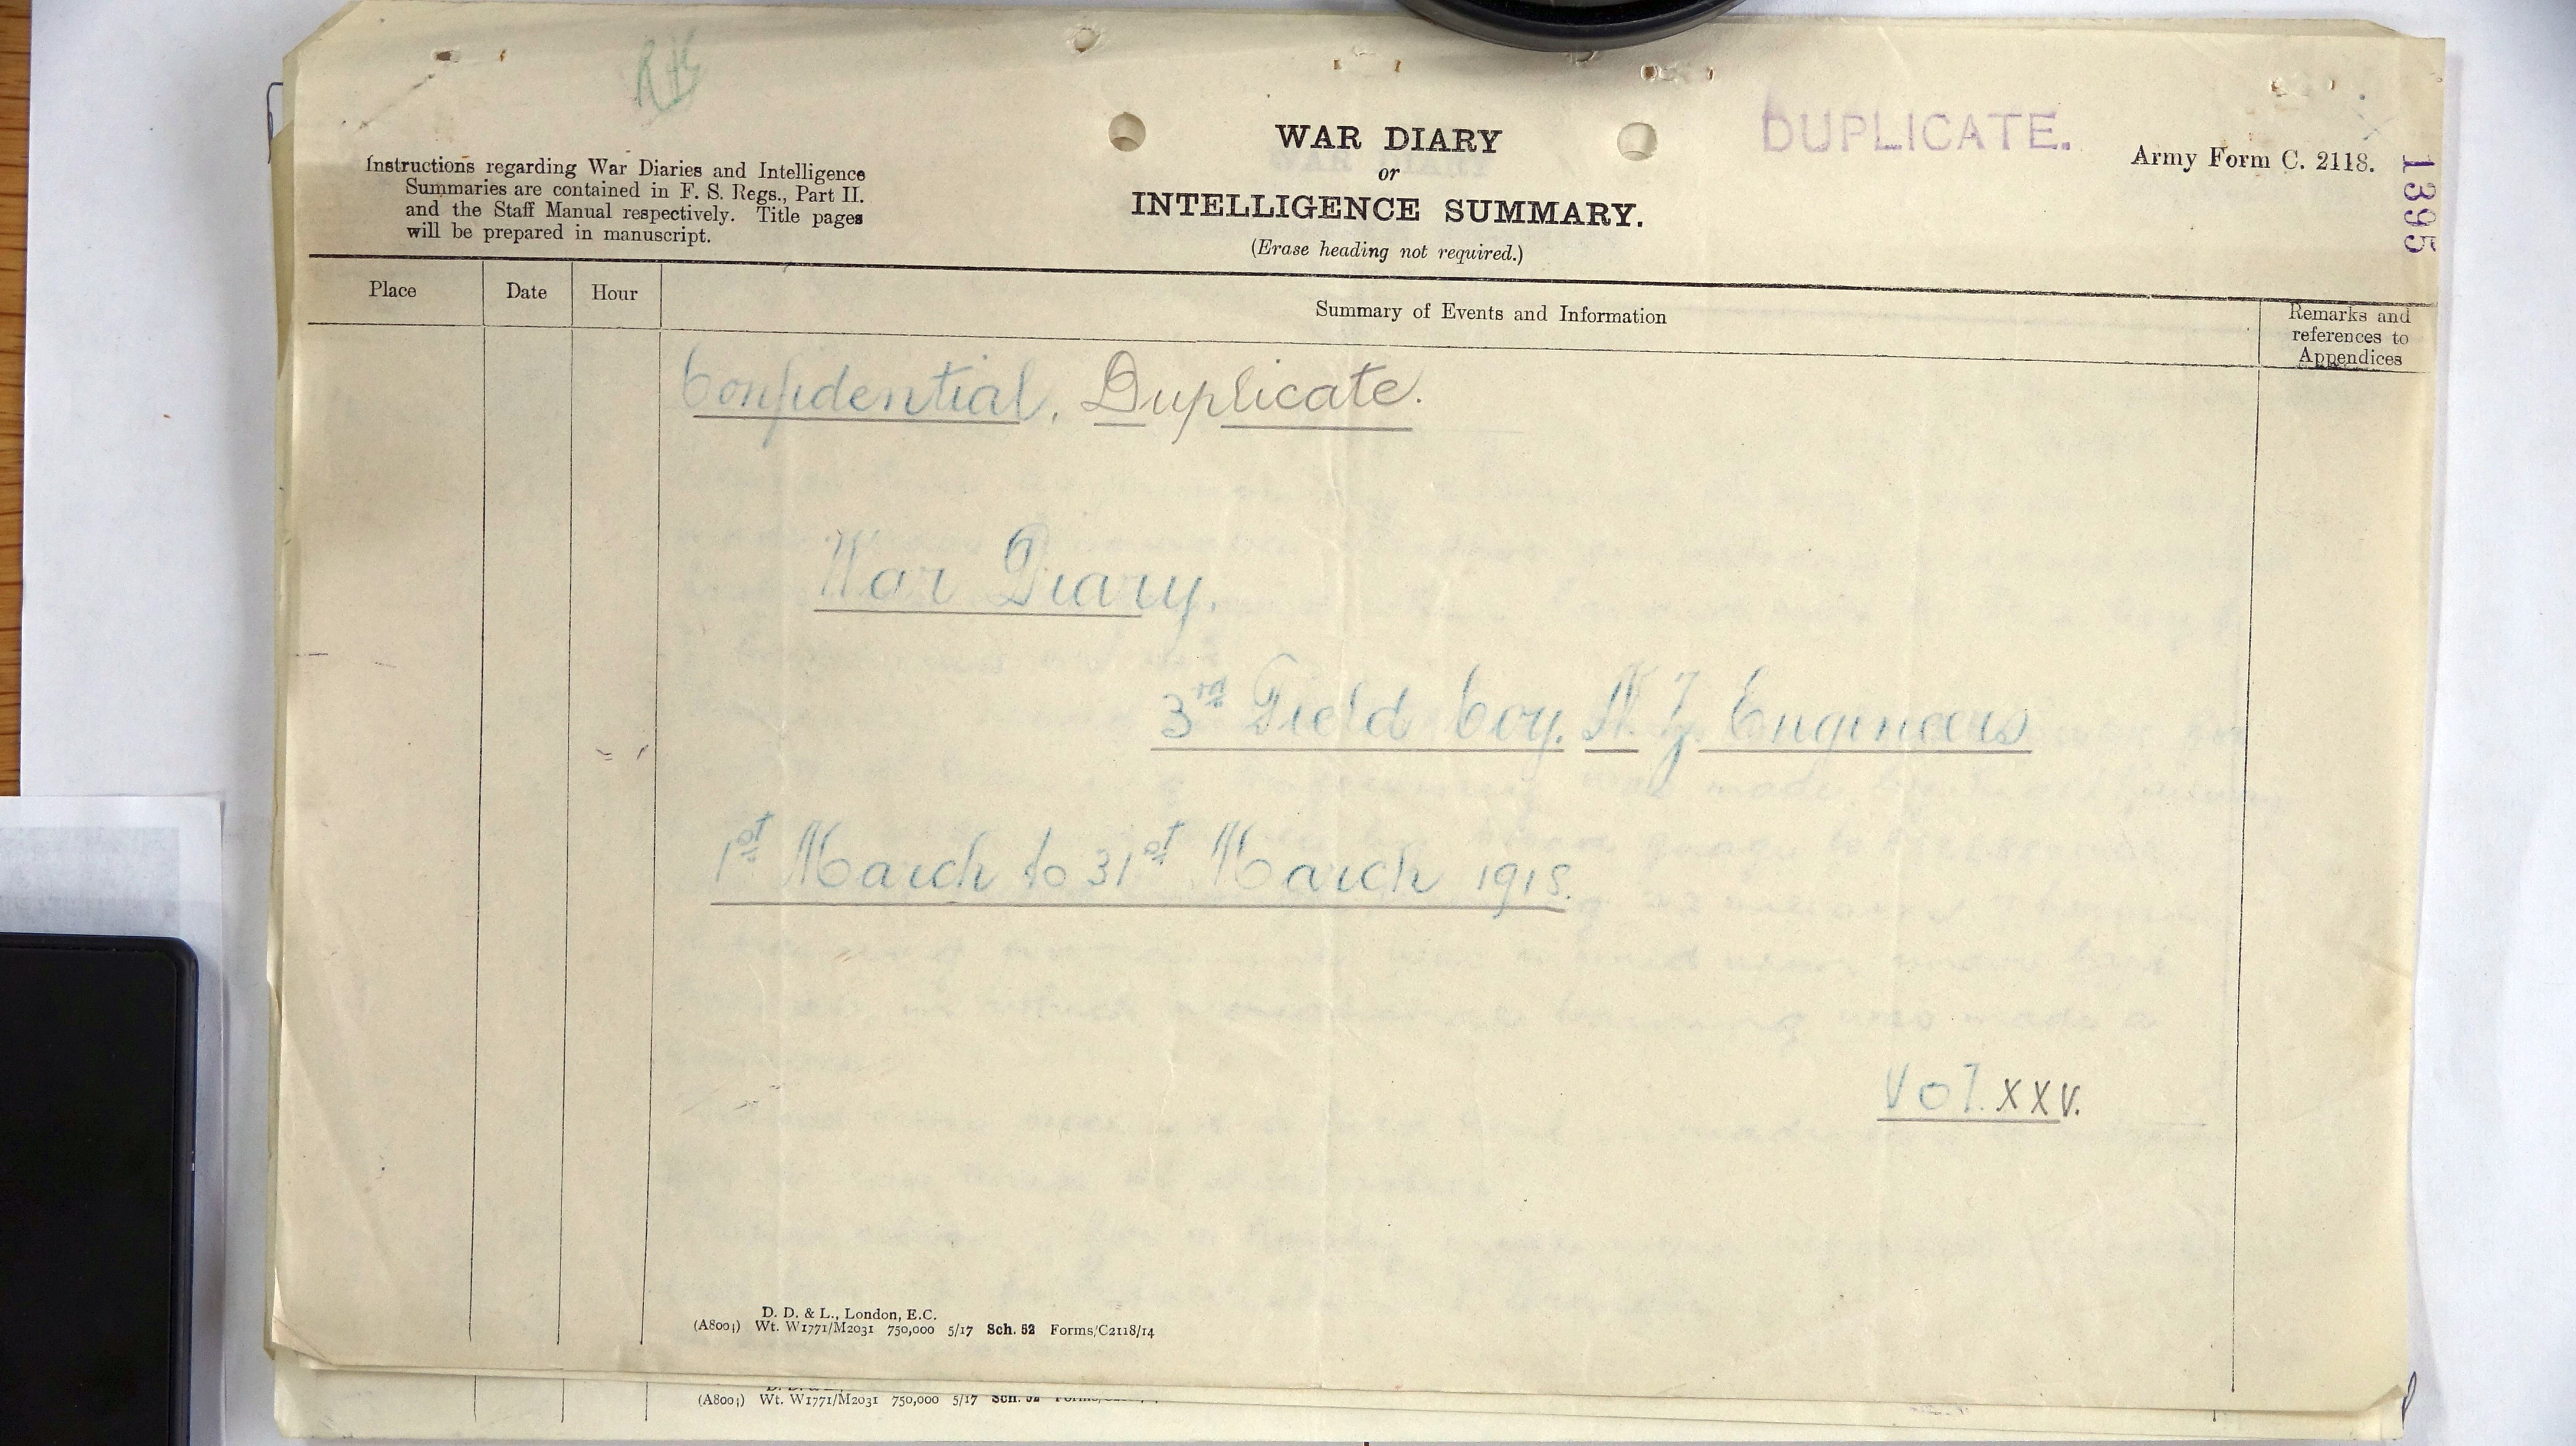 DUPLICATE.
Army Form C. 2118.
1395
WAR DIARY
or
INTELLIGENCE SUMMARY.
(Erase heading not required.)
Instructions regarding War Diaries and Intelligence
Summaries are contained in F. S. Regs., Part II.
and the Staff Manual respectively. Title pages
will be prepared in manuscript.
Place Date Hour Summary of Events and Information Remarks and
references to
Appendices
Confidential. Duplicate.
War Diary.
3rd Field Coy. N. Z. Engineers
1st March to 31st March 1918.
Vol. XXV.
D. D. & L., London, E.C.
(A8001) Wt. W1771/M2031 750,000 5/17 Sch. 52 Forms/C2118/14
(A8001) Wt. W1771/M2031 750,000 5/17 Sch. 52